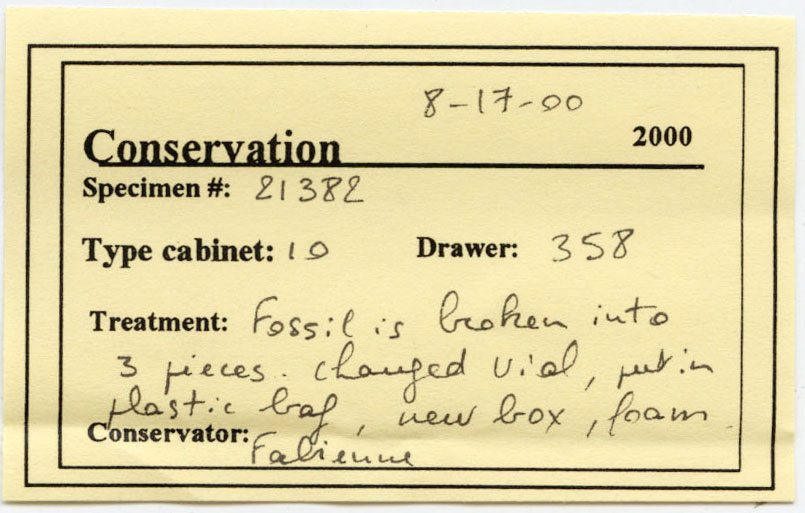 8-17-00
Conservation 2000
Specimen #: 21382
Type cabinet: 10 Drawer: 358
Treatment: Fossil is broken into
3 pieces. changed vial, put in
plastic bag, new box, foam.
Conservator: Fabienne